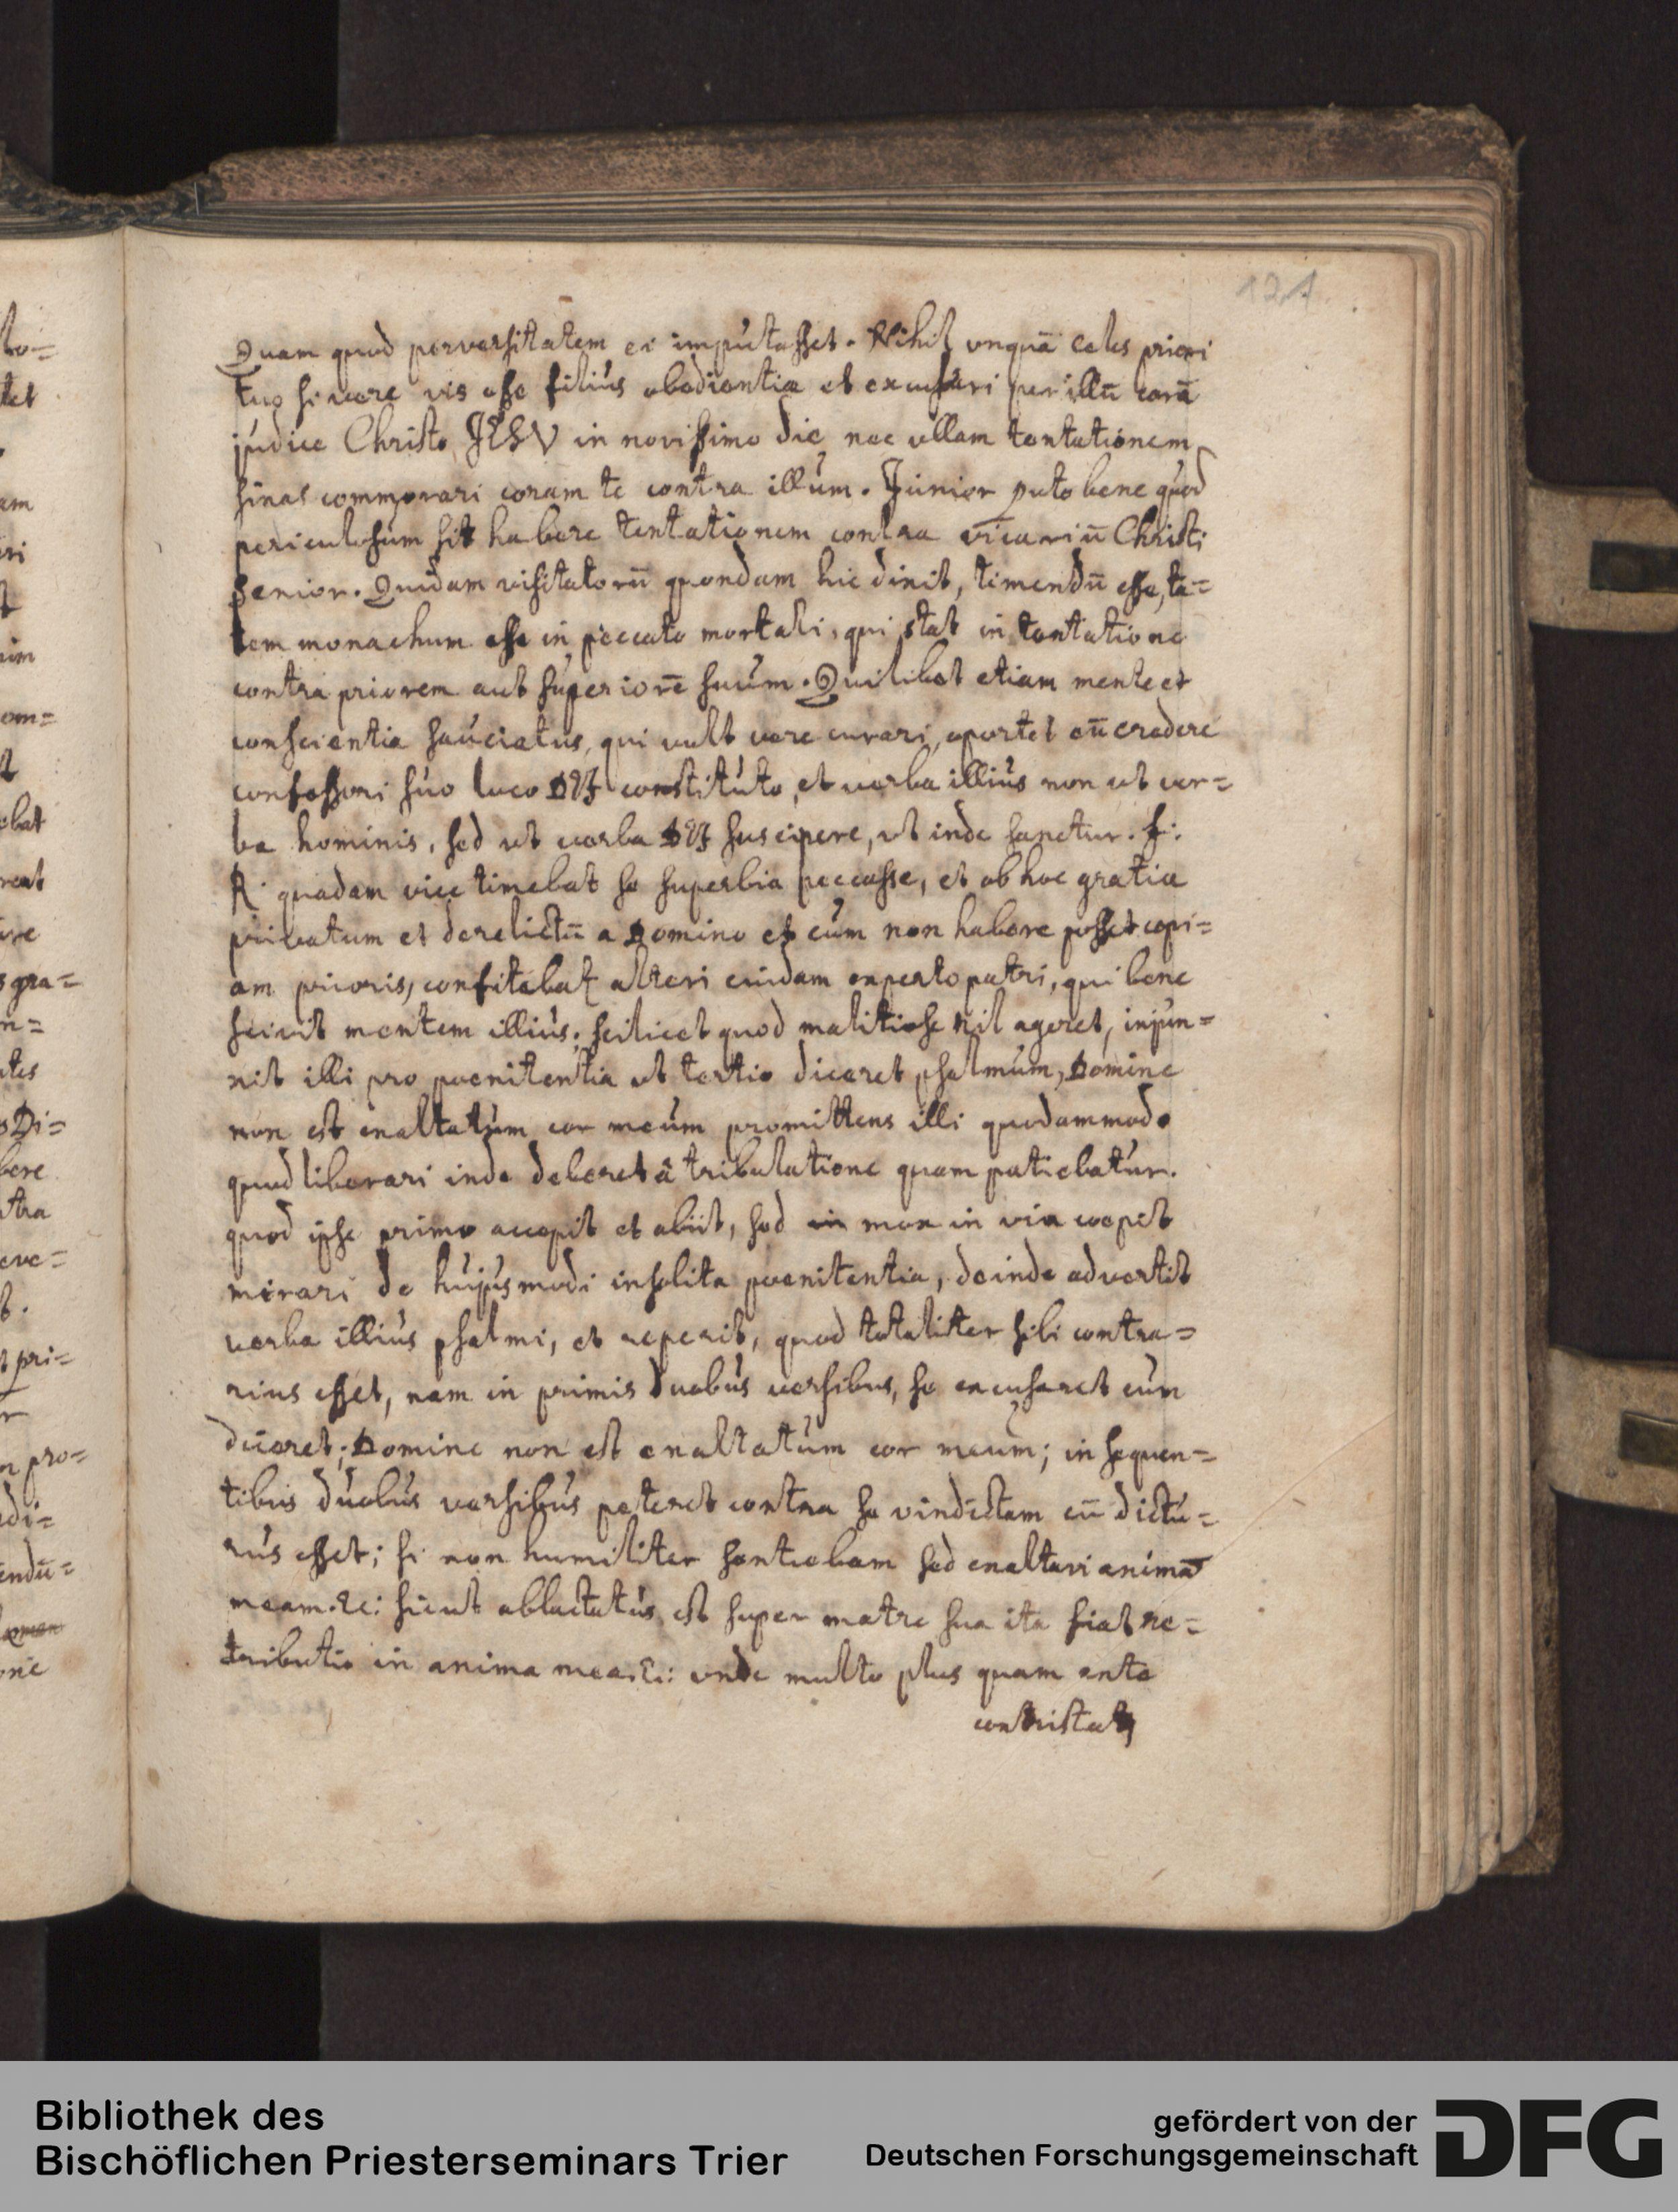 121
Quam quod perversitatem ei imputasset. Nihil unquā celes priori
tuo si vere vis esse filius obedientiæ et excusari per illū corā
judice Christo JESV in novissimo die nec ullam tentationem
sinas commorari coram te contra illum. Junior puto bene quod
periculosum sit habere tentationem contra vicariū Christi
Senior. Quidam visitatorū quondam hic dixit, timendū esse, ta=
lem monachum esse in peccato mortali, qui stat in tentatione
contra priorem aut superiorē suum. Quilibet etiam mente et
conscientia sauciatus, qui vult vere curari, oportet eū credere
confessori suo loco DEI constituto, et verba illius non ut ver=
ba hominis, sed ut verba DEI suscipere, ut inde sanetur. F:
R: quadam vice timebat se superbia peccasse, et ob hoc gratia
privatum et derelictū a Domino et cum non habere posset copi=
am prioris, confitebat alteri cuidam experto patri, qui bene
scivit mentem illius; scilicet quod malitiose nil ageret, injun=
xit illi pro poenitentia ut tertio diceret psalmum, Domine
non est exaltatum cor meum promittens illi quodammodo
quod liberari inde deberet â tribulatione quam patiebatur.
quod ipse primo accepit et abiit, sed in mox in via coepit
mirari de hujusmodi insolita poenitentia, deinde advertit
verba illius psalmi, et reperit, quod totaliter sibi contra=
rius esset, nam in primis duobus versibus, se excusaret cum
diceret; Domine non est exaltatum cor meum; in sequen=
tibus duobus versibus peteret contra se vindictam cū dictu=
rus esset; si non humiliter sentiebam sed exaltavi animā
meam. &c: sicut ablactatus est super matre sua ita fiat re=
tributio in anima mea. &c: unde multo plus quam ante
contristatq
lo=
tet
am
im
om=
t
ebat
reat
gra=
n=
Di=
bere
stra
eve=
t.
pri=
pro=
di=
endū=
Bibliothek des
Bischöflichen Priesterseminars Trier
gefördert von der
Deutschen Forschungsgemeinschaft
DFG